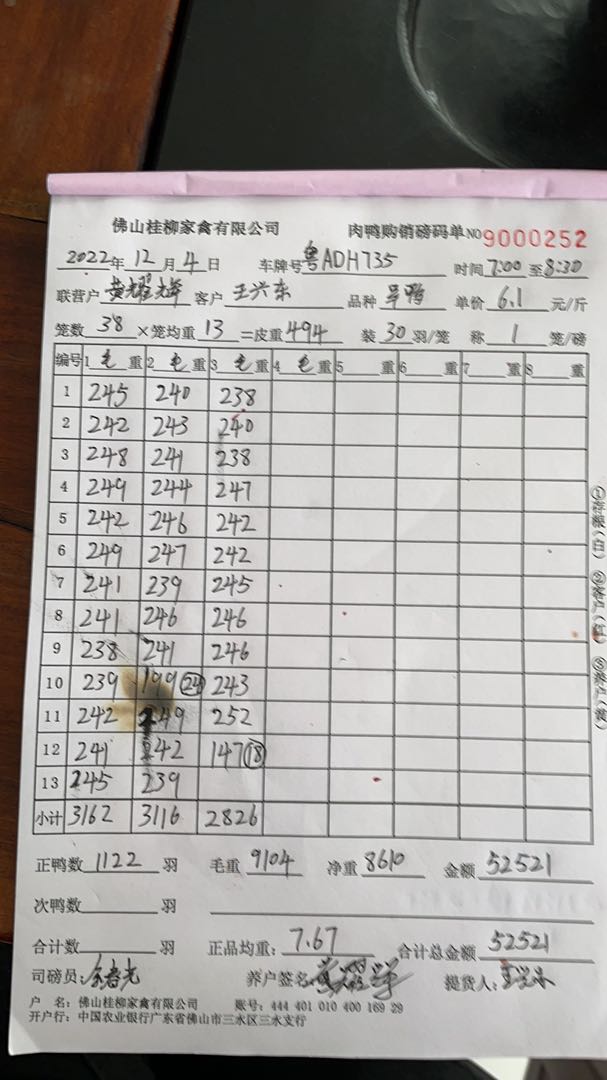 佛山桂柳家禽有限公司 肉鸭购销磅码单 NO 9000252
2022年 12月 4日 车牌号 粤ADH735 时间 7:00 至 8:30
联营户 黄耀辉 客户 王兴东 品种 旱鸭 单价 6.1 元/斤
笼数 38 ×笼均重 13 =皮重 494 装 30 羽/笼 称 1 笼/磅
编号 1 毛 重 2 毛 重 3 毛 重 4 毛 重 5 重 6 重 7 重 8 重
1 245 240 238
2 242 243 240
3 248 241 238
4 249 244 247
5 242 246 242
6 249 247 242
7 241 239 245
8 241 246 246
9 238 241 246
10 239 199 (24) 243
11 242 249 252
12 241 242 147 (18)
13 245 239
小计 3162 3116 2826
正鸭数 1122 羽 毛重 9104 净重 8610 金额 52521
次鸭数 羽
合计数 羽 正品均重: 7.67 合计总金额 52521
司磅员: 养户签名 提货人:
户 名: 佛山桂柳家禽有限公司 账号: 444 401 010 400 169 29
开户行: 中国农业银行广东省佛山市三水区三水支行
①存根(白) ②客户(红) ③养户(黄)